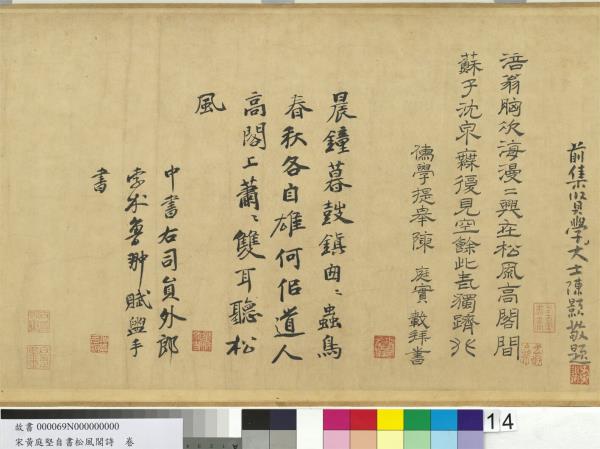 前集賢學大士陳顥敬題
涪翁胸次海漫〻興在松風高閣間
蘇子沈泉無復見空餘此獨躋
儒學提舉陳 庭實 載拜書
晨鐘暮鼓鎮囱〻蟲鳥
春秋各自雄何侣道人
高閣上蕭〻雙耳聽松
風
中書右司員外郎
孛术魯翀賦盥手
書
14
故書 000069N000000000
宋黃庭堅自書松風閣詩 卷